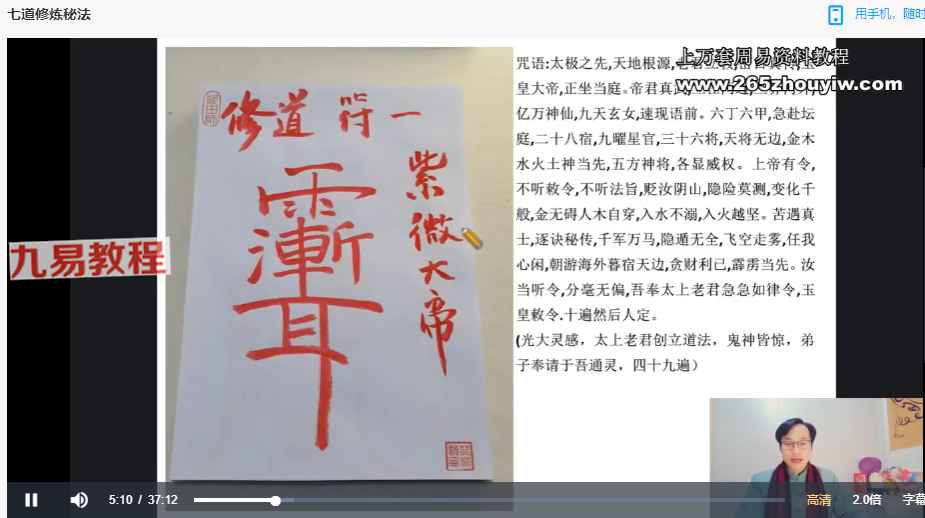 七道修炼秘法
用手机，随时
上万套周易资料教程
www.265zhouyiw.com
九易教程
修道符一
紫微大帝
咒语:太极之先,天地根源,
皇大帝,正坐当庭。帝君真
亿万神仙,九天玄女,速现语前。六丁六甲,急赴坛
庭,二十八宿,九曜星官,三十六将,天将无边,金木
水火土神当先,五方神将,各显威权。上帝有令,
不听敕令,不听法旨,贬汝阴山,隐险莫测,变化千
般,金无碍人木自穿,入水不溺,入火越坚。苦遇真
士,逐诀秘传,千军万马,隐遁无全,飞空走雾,任我
心闲,朝游海外暮宿天边,贪财利己,霹雳当先。汝
当听令,分毫无偏,吾奉太上老君急急如律令,玉
皇敕令.十遍然后人定。
(光大灵感，太上老君创立道法，鬼神皆惊，弟
子奉请于吾通灵，四十九遍）
5:10 / 37:12
高清
2.0倍
字幕